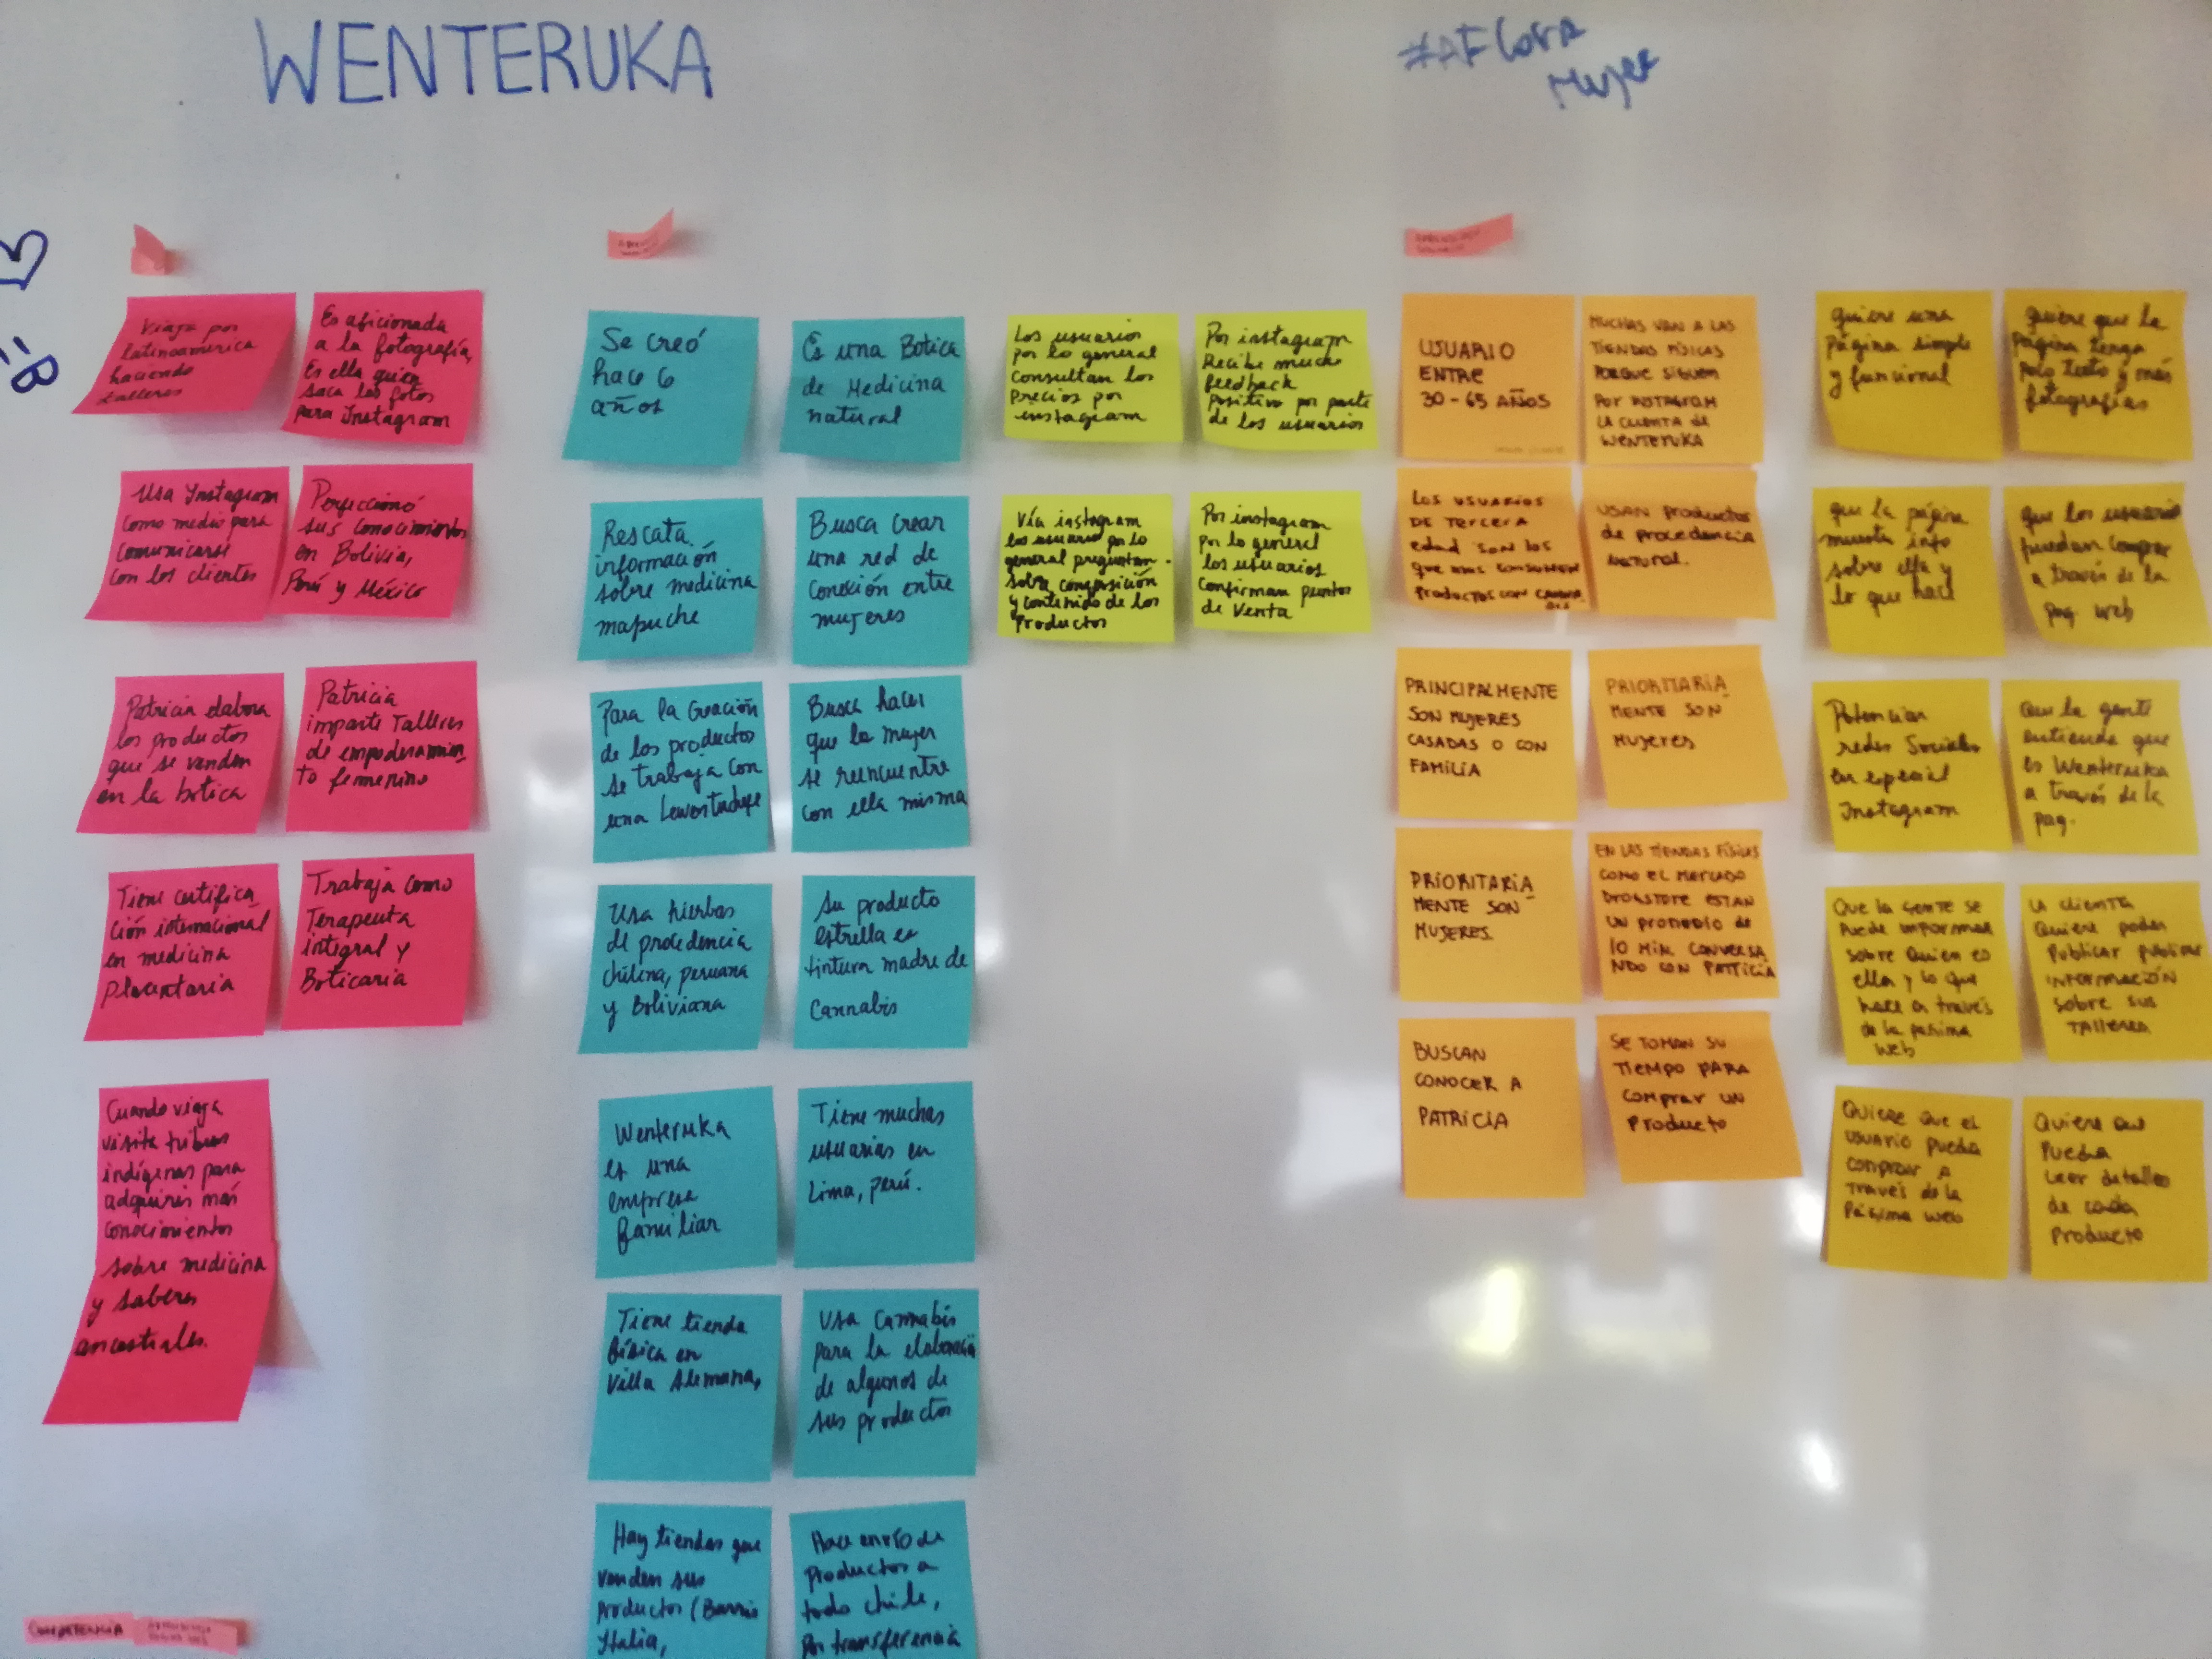 WENTERUKA
#AFlora
Mujer
Viaja por
latinoamérica
haciendo
talleres
Es aficionada
a la fotografía,
Es ella quien
saca las fotos
para Instagram
Usa Instagram
como medio para
comunicarse
con los clientes
Perfeccionó
sus conocimientos
en Bolivia,
Perú y México
Patricia elabora
los productos
que se venden
en la botica
Patricia
imparte Talleres
de empoderamien
to femenino
Tiene certifica
ción internacional
en medicina
placentaria
Trabaja como
Terapeuta
integral y
Boticaria
Cuando viaja
visita tribus
indígenas para
adquirir más
conocimientos
sobre medicina
y saberes
ancestrales.
COMPETENCIA
Se creó
hace 6
años
Es una Botica
de Medicina
natural
Rescata
información
sobre medicina
mapuche
Busca crear
una red de
conexión entre
mujeres
Para la creación
de los productos
se trabaja con
una
Busca hacer
que la mujer
se reencuentre
con ella misma
Usa hierbas
de procedencia
chilena, peruana
y Boliviana
Su producto
estrella es
tintura madre de
Cannabis
Wenteruka
es una
empresa
familiar
Tiene muchas
usuarias en
Lima, perú.
Tiene tienda
física en
Villa Alemana,
Usa Cannabis
para la elaboración
de algunos de
sus productos
Hay tiendas que
venden sus
productos (Barrio
Italia,
Hace envío de
productos a
todo chile,
por transferencia
Los usuarios
por lo general
consultan los
precios por
instagram
Por instagram
Recibe mucho
feedback
positivo por parte
de los usuarios
Vía instagram
los usuario por lo
general preguntan
sobre composición
y contenido de los
productos
Por instagram
por lo general
los usuarios
confirman puntos
de Venta
USUARIO
ENTRE
30-65 AÑOS
MUCHAS VAN A LAS
TIENDAS FÍSICAS
PORQUE SIGUEN
POR INSTAGRAM
LA CUENTA DE
WENTERUKA
LOS USUARIOS
DE TERCERA
edad SON LOS
que mas consumen
PRODUCTOS CON
USAN productos
de procedencia
NATURAL.
PRINCIPALMENTE
SON MUJERES
CASADAS O CON
FAMILIA
PRIORITARIA
MENTE SON
MUJERES
PRIORITARIA
MENTE SON
MUJERES
EN LAS TIENDAS FÍSICAS
COMO EL MERCADO
DRUGSTORE ESTAN
UN PROMEDIO DE
10 MIN. CONVERSA
NDO CON PATRICIA
BUSCAN
CONOCER A
PATRICIA
SE TOMAN SU
TIEMPO PARA
comprar UN
producto
quiere una
página simple
y funcional
Quiere que la
página tenga
poco texto y más
fotografías
que la página
muestre info
sobre ella y
lo que hace
que los usuarios
puedan comprar
a través de la
pag. web
Potenciar
redes Sociales
en especial
Instagram
Que la gente
entienda que
es Wenteruka
a través de la
pag.
Que la gente se
puede informar
sobre quien es
ella y lo que
hace a través
de la página
web
La clienta
quiere poder
publicar publicar
INFORMACIÓN
sobre sus
TALLERES
QUIERE QUE EL
USUARIO pueda
comprar A
TRAVÉS de la
Página web
Quiere que
pueda
Leer detalles
de cada
producto